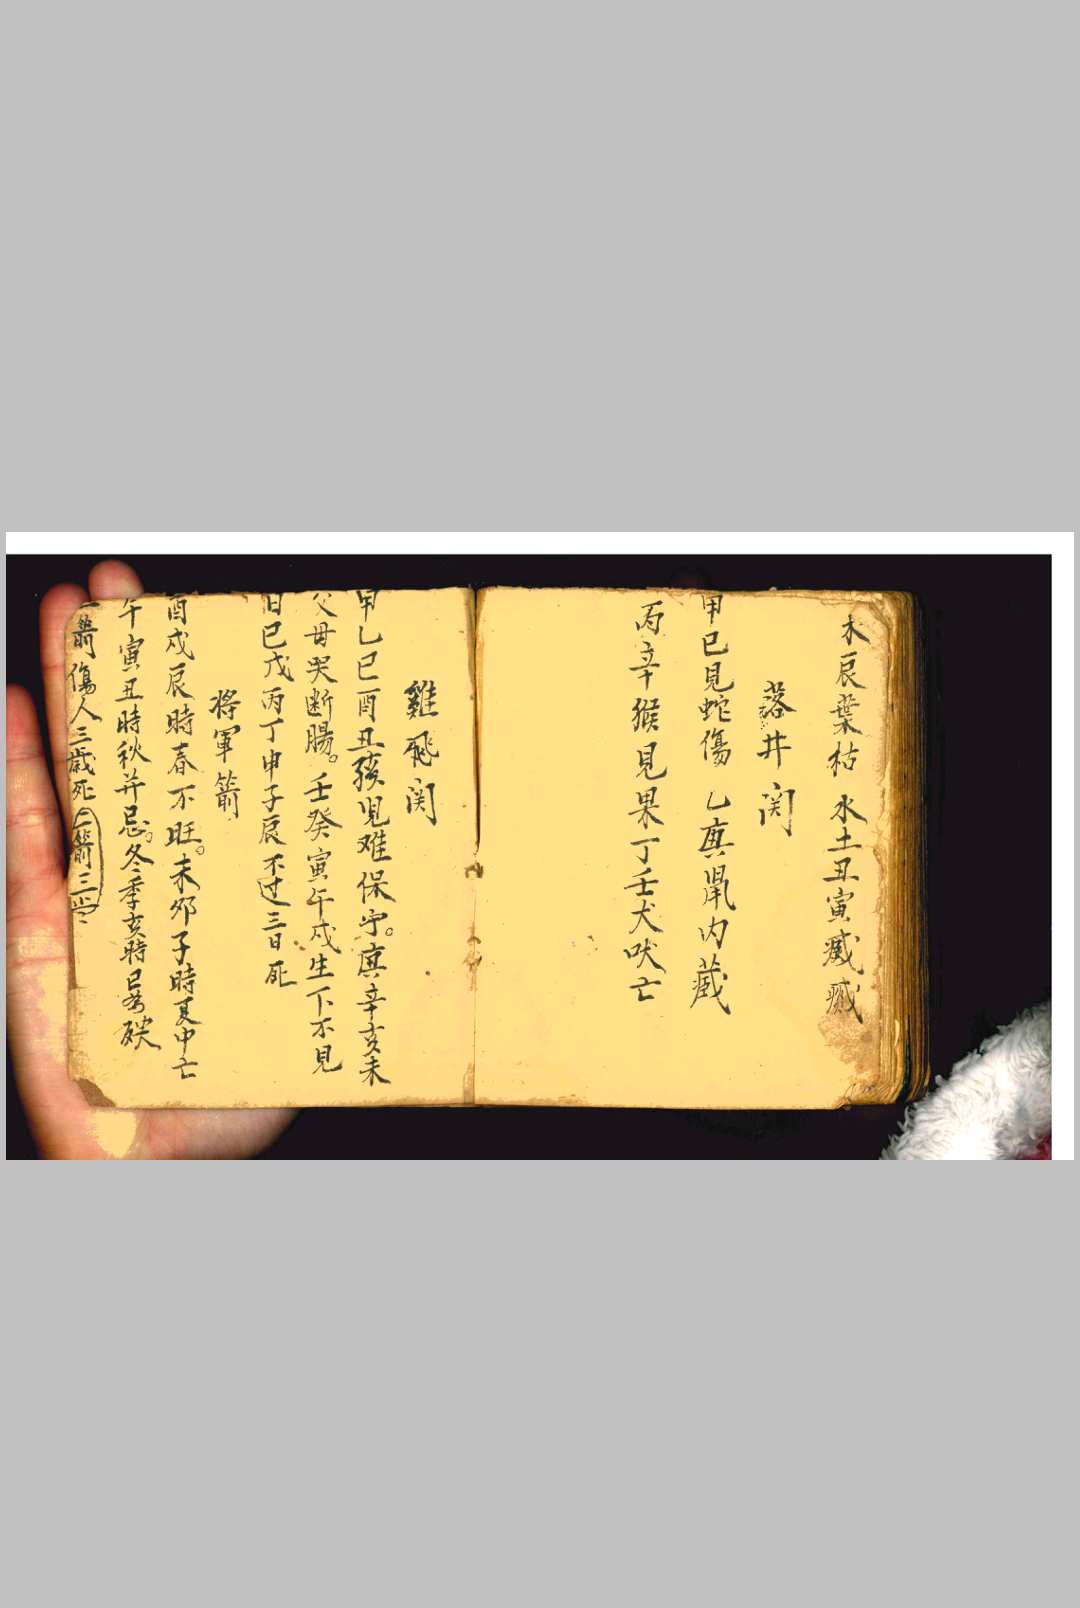 木辰葉枯 水土丑寅臧臧
落井関
甲己見蛇傷 乙庚鼠内藏
丙辛猴見果丁壬犬吠亡
雞飛関
甲乙巳酉丑孩児难保守。庚辛亥未
父母哭断腸。壬癸寅午戌生下不見
日己戊丙丁申子辰不过三日死
将軍箭
酉戌辰時春不旺。未卯子時夏中亡
午寅丑時秋并忌。冬季亥時巳為殃
一箭傷人三歳死二箭三